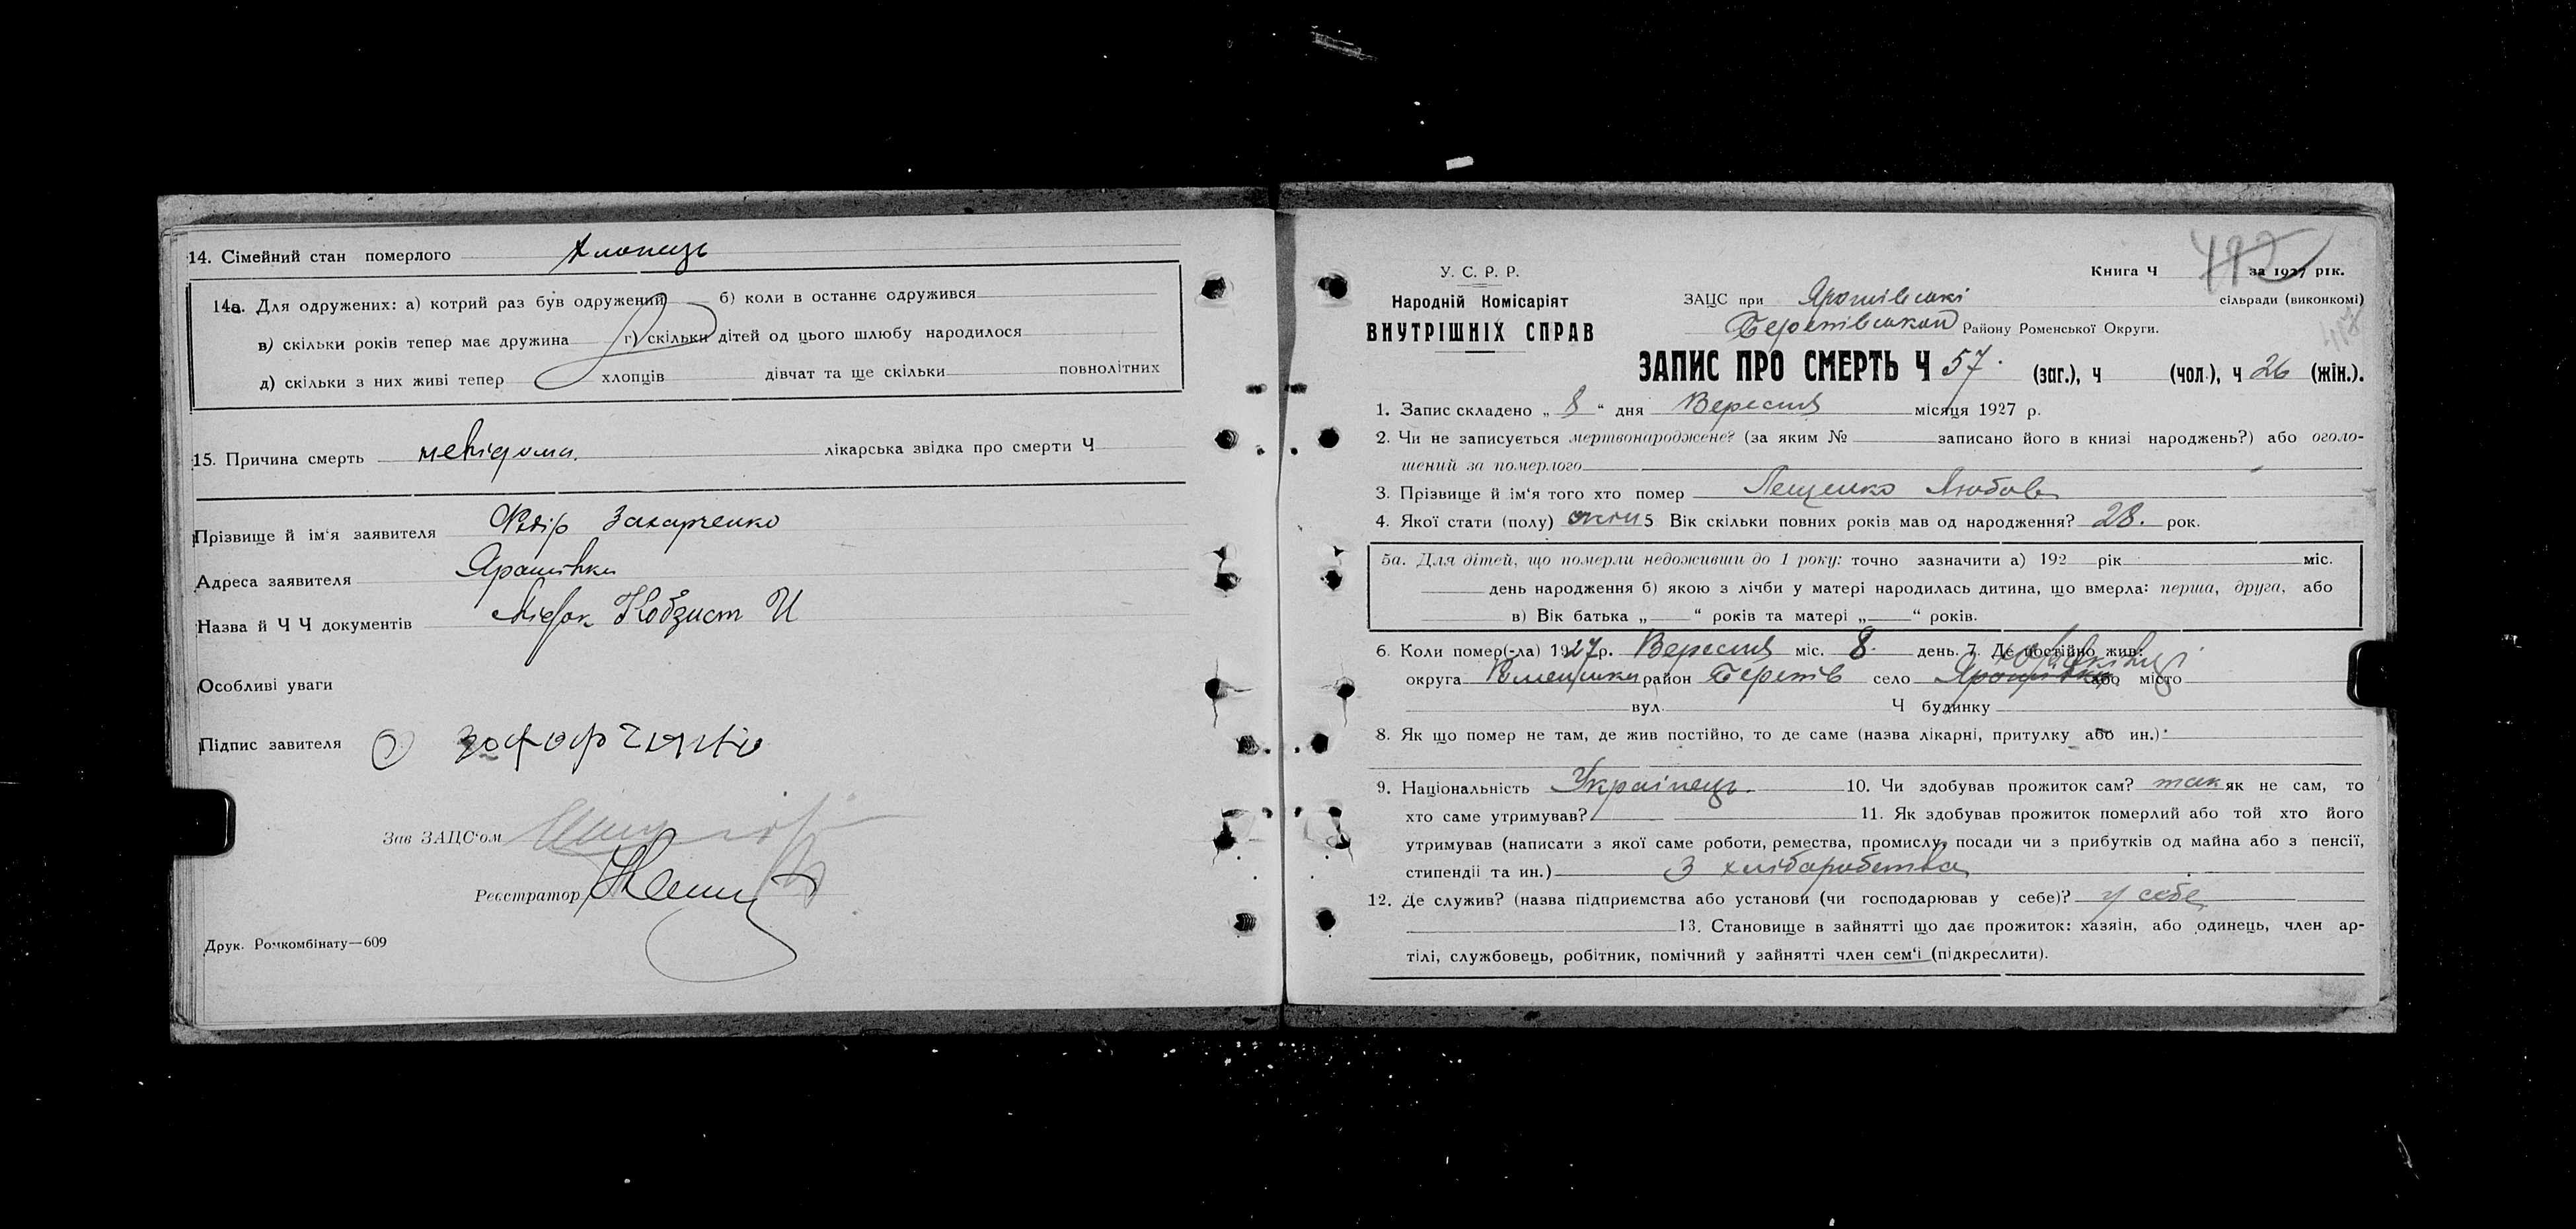 14. Сімейний стан померлого хлопець
14а. Для одружених: а) котрий раз був одружений б) коли в останнє одружився
в) скільки років тепер має дружина г) скільки дітей од цього шлюбу народилося
д) скільки з них живі тепер хлопців дівчат та ще скільки повнолітних
15. Причина смерть невідома. лікарська звідка про смерти Ч
Прізвище й ім'я заявителя Федір Захарченко
Адреса заявителя Ярошівка
Назва й Ч Ч документів
Особливі уваги
Підпис завителя
Зав ЗАЦС'ом
Реєстратор
Друк. Ромкомбінату—609
У. С. Р. Р.
Народній Комісаріят
ВНУТРІШНІХ СПРАВ
Книга Ч 492 за 1927 рік.
ЗАЦС при Ярошівські сільради (виконкомі)
Району Роменської Округи.
ЗАПИС ПРО СМЕРТЬ Ч 57. (заг.), ч (чол.), ч 26 (жін.).
1. Запис складено „ 8 “ дня Вересня місяця 1927 р.
2. Чи не записується мертвонароджене? (за яким № записано його в книзі народжень?) або оголо-
шений за померлого
3. Прізвище й ім'я того хто помер Лещенко Любов
4. Якої стати (полу) 5 Вік скільки повних років мав од народження? 28. рок.
5а. Для дітей, що померли недоживши до 1 року: точно зазначити а) 192 рік міс.
день народження б) якою з лічби у матері народилась дитина, що вмерла: перша, друга, або
в) Вік батька „ “ років та матері „ “ років.
6. Коли помер(-ла) 1927р. Вересня міс. 8. день. 7. Де постійно жив:
округа район село Ярошівка або місто
вул. Ч будинку
8. Як що помер не там, де жив постійно, то де саме (назва лікарні, притулку або ин.)
9. Національність Українець. 10. Чи здобував прожиток сам? так як не сам, то
хто саме утримував? 11. Як здобував прожиток померлий або той хто його
утримував (написати з якої саме роботи, ремества, промислу, посади чи з прибутків од майна або з пенсії,
стипендії та ин.) З хліборобства
12. Де служив? (назва підприємства або установи (чи господарював у себе)? у себе
13. Становище в зайнятті що дає прожиток: хазяін, або одинець, член ар-
тілі, службовець, робітник, помічний у зайнятті член сем'ї (підкреслити).